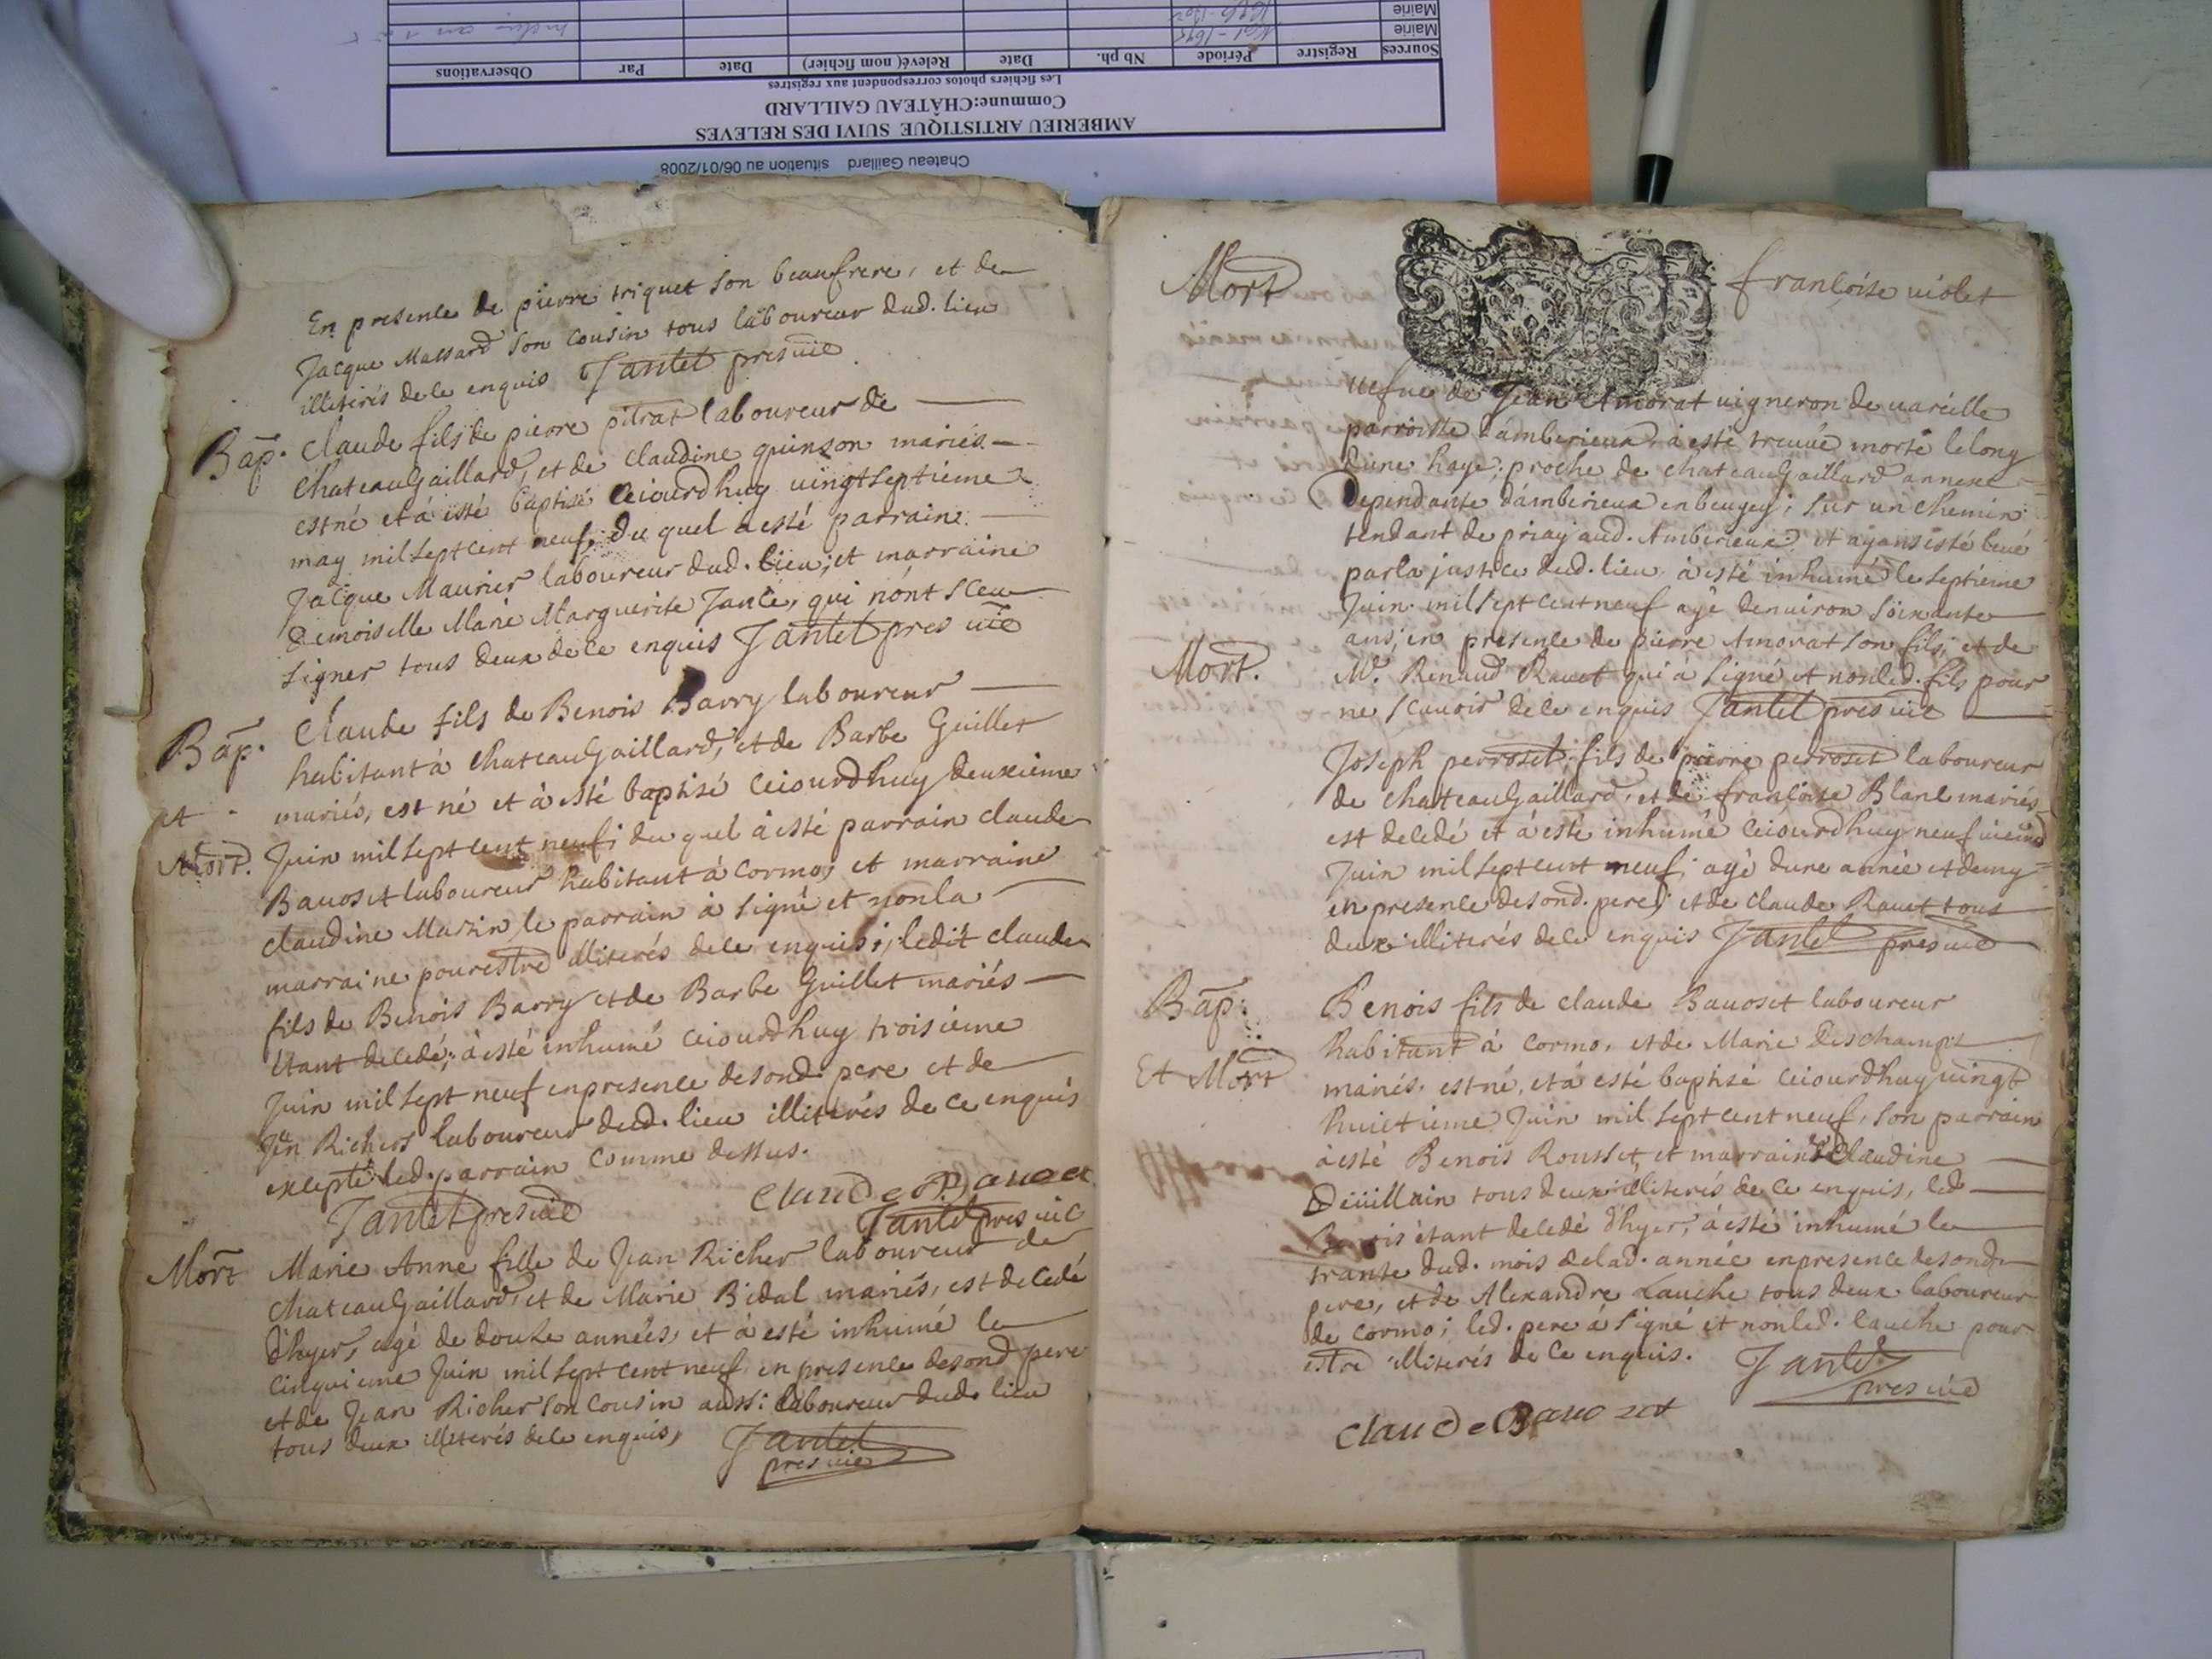 Chateau Gaillard situation au 06/01/2008
AMBERIEU ARTISTIQUE SUIVI DES RELEVES
Commune:CHÂTEAU GAILLARD
Les fichiers photos correspondent aux registres
Sources Registre Période Nb ph. Date Relevé( nom fichier) Date Par Observations
Mairie
Mairie
En presence de pierre triquet son beaufrere, et de
Jacque Massard son cousin tous laboureur dud. lieu
illiterés de ce enquis Jantet pres vic
Bap. Claude fils de pierre pitrat laboureur de
chateauGaillard, et de claudine quinson mariés
est né et à esté baptisé Ceiourdhuy vingtseptieme
may mil sept cent neuf, du quel a esté parrain
Jacque Maurier laboureur dud. lieu, et marraine
Demoiselle Marie Marguerite Jance, qui n'ont sceu
signer tous deux de ce enquis Jantet pres vic
Bap. Claude fils de Benois Barry laboureur
habitant à chateauGaillard, et de Barbe Guillet
et mariés, est né et à esté baptisé ceiourdhuy deuxieme
Mort. Juin mil sept cent neuf; du quel à esté parrain claude
Bavoset laboureur habitant à Cormo, et marraine
claudine Martin, le parrain à signé et non la
marraine pour estre illiterés de ce enquis; ledit claude
fils de Benois Barry et de Barbe Guillet mariés
étant decedé; à esté inhumé ceiourdhuy troisieme
Juin mil sept neuf en presence de sond. pere et de
Jean Richers laboureur dud. lieu illiterés de ce enquis
excepté led. parrain comme dessus.
Jantet pres vic Claude Bavoset
Jantet pres vic
Mort Marie Anne fille de Jean Richer laboureur de
chateauGaillard, et de Marie Bidal mariés, est decedé
d'hyer, agé de douze années, et à esté inhumé le
cinquieme Juin mil sept cent neuf en presence de sond pere
et de Jean Richer son cousin aussi laboureur dud. lieu
tous deux illiterés de ce enquis, Jantet
pres vic
Mort francoise violet
vefve de Jean Amorat vigneron de vareille
parroisse d'amberieux à esté treuvée morte le long
d'une haye, proche de chateauGaillard annexe
Dependante d'amberieux en beugey; sur un chemin
tendant de priay aud. Amberieux; et ayant esté levé
par la justice dud. lieu à esté inhumé le septieme
Juin mil sept cent neuf agé denviron soixante
ans, en presence de pierre Amorat son fils, et de
Mort. Mr. Renaud Ravet qui à signé et non led. fils pour
ne scavoir de ce enquis Jantet pres vic
Joseph perroset, fils de pierre perroset laboureur
de chateauGaillard, et de francoise Blanc mariés
est decedé et à esté inhumé ceiourdhuy neufvieme
Juin mil sept cent neuf, agé dune année et demy
en presence de sond. pere, et de claude Ravet tous
deux illiterés de ce enquis Jantet pres vic
Bap: Benois fils de claude Bavoset laboureur
habitant à cormo, et de Marie Deschamps
Et Mort mariés, est né, et à esté baptisé ceiourdhuy vingt
huictieme Juin mil sept cent neuf, son parrain
à esté Benois Rousset, et marraine Claudine
tous deux illiterés de ce enquis, led
Benois étant decedé d'hyer, à esté inhumé le
trante dud. mois delad. année en presence de sond.
pere, et de Alexandre Lauche tous deux laboureur
de cormo; led. pere à signé et non led. lauche pour
estre illiterés de ce enquis. Jantet
pres vic
Claude Bavozet